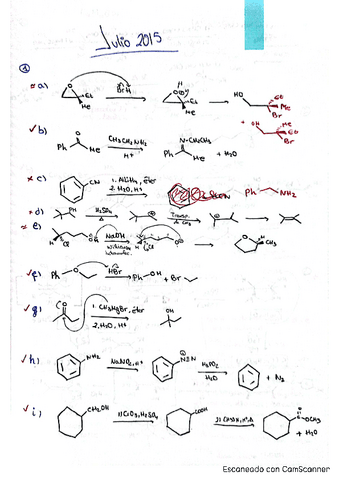 Julio 2015
①
a) O Et Me BrH H O Et Me HO Et Me Br
+ HO Me Et Br
b) O Ph Me CH3CH2NH2 H+ N-CH2CH3 Ph Me + H2O
c) CN 1. AlLiH4, éter 2. H2O, H+ Ph NH2
d) Ph H2SO4 Δ ⊕ Transp. de CH3 ⊕
e) H Cl OH NaOH O⊖ Cl O H CH3
f) Ph O HBr Ph-OH + Br
g) O 1. CH3MgBr, éter 2. H2O, H+ OH
h) NH2 NaNO2, H+ N≡N H3PO2 H2O + N2
i) CH2OH 1) CrO3, H2SO4 COOH 2) CH3OH, H+, Δ O OCH3
+ H2O
Escaneado con CamScanner